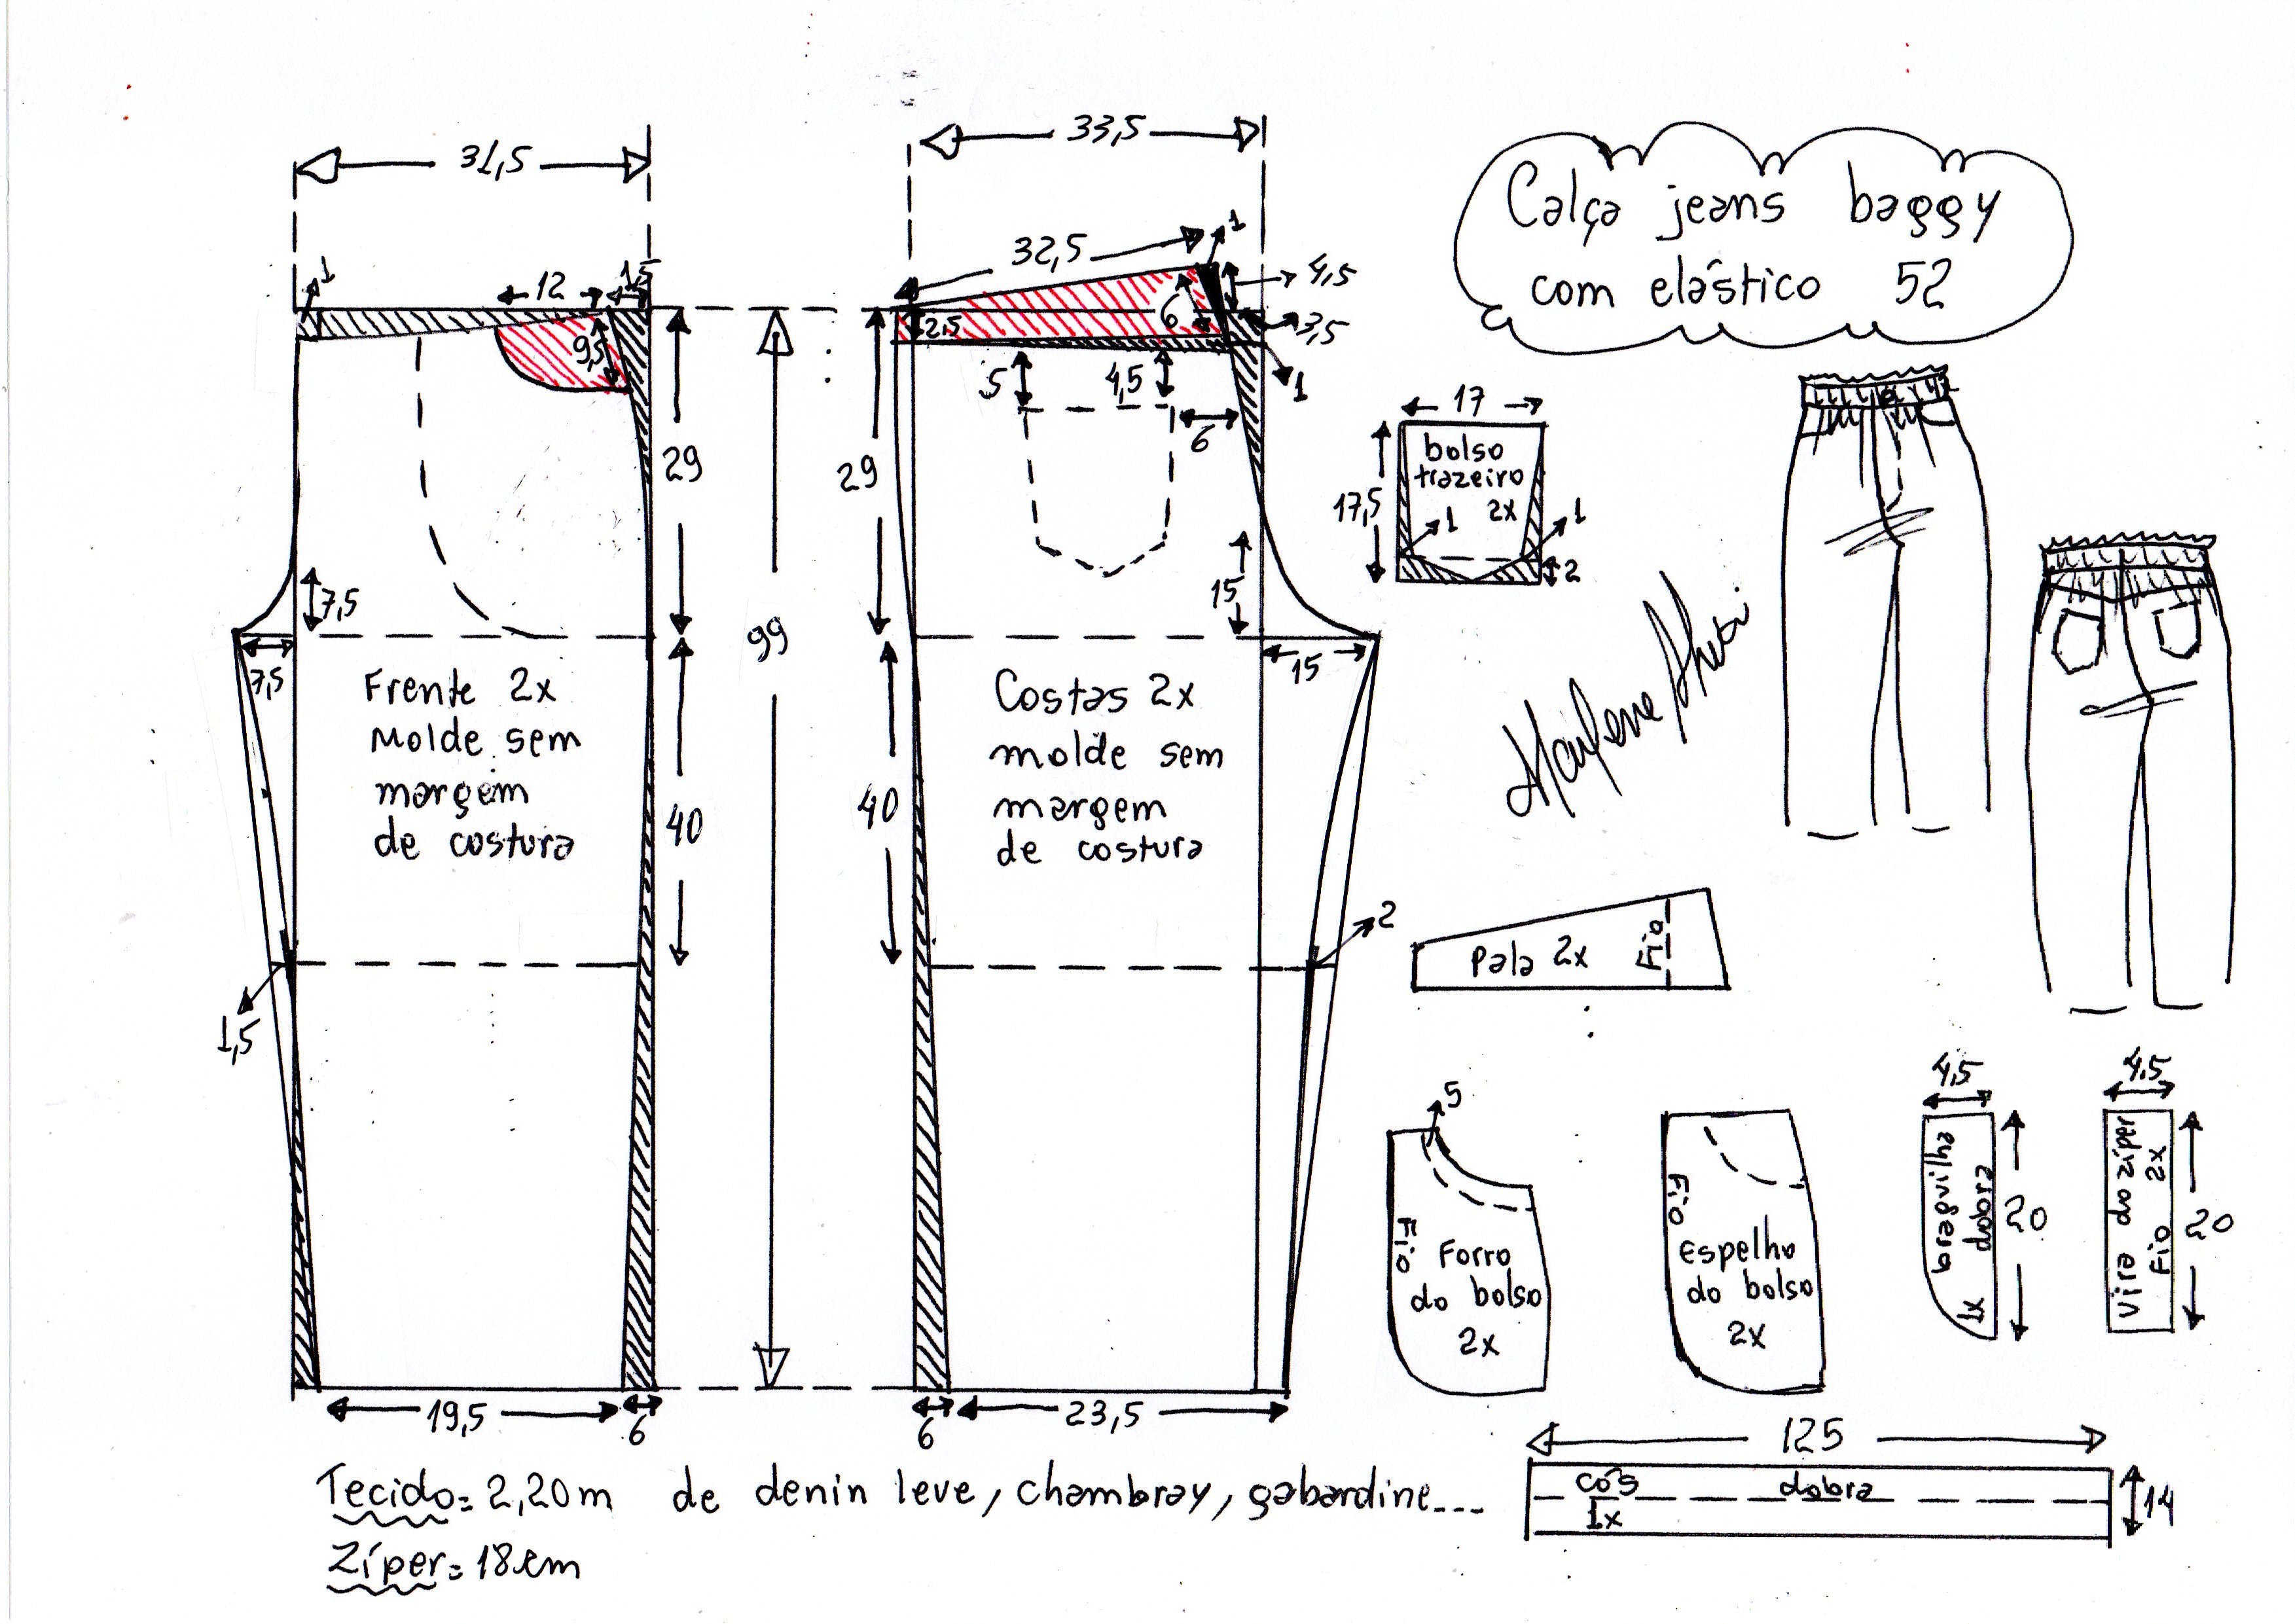 Calça jeans baggy
com elástico 52
31,5
33,5
1
12
1,5
9,5
29
7,5
7,5
Frente 2x
Molde sem
margem
de costura
40
1,5
19,5
6
99
32,5
1
4,5
6
2,5
3,5
1
5
4,5
6
29
15
15
Costas 2x
molde sem
margem
de costura
40
2
6
23,5
17
bolso
trazeiro
2x
17,5
1
1
2
Pala 2x
Fio
5
Fio
Forro
do bolso
2x
Fio
Espelho
do bolso
2x
4,5
braguilha
dobra
1x
20
4,5
Vira do zíper
Fio 2x
20
125
cós
dobra
1x
14
Tecido= 2,20m de denin leve, chambray, gabardine...
Zíper= 18cm